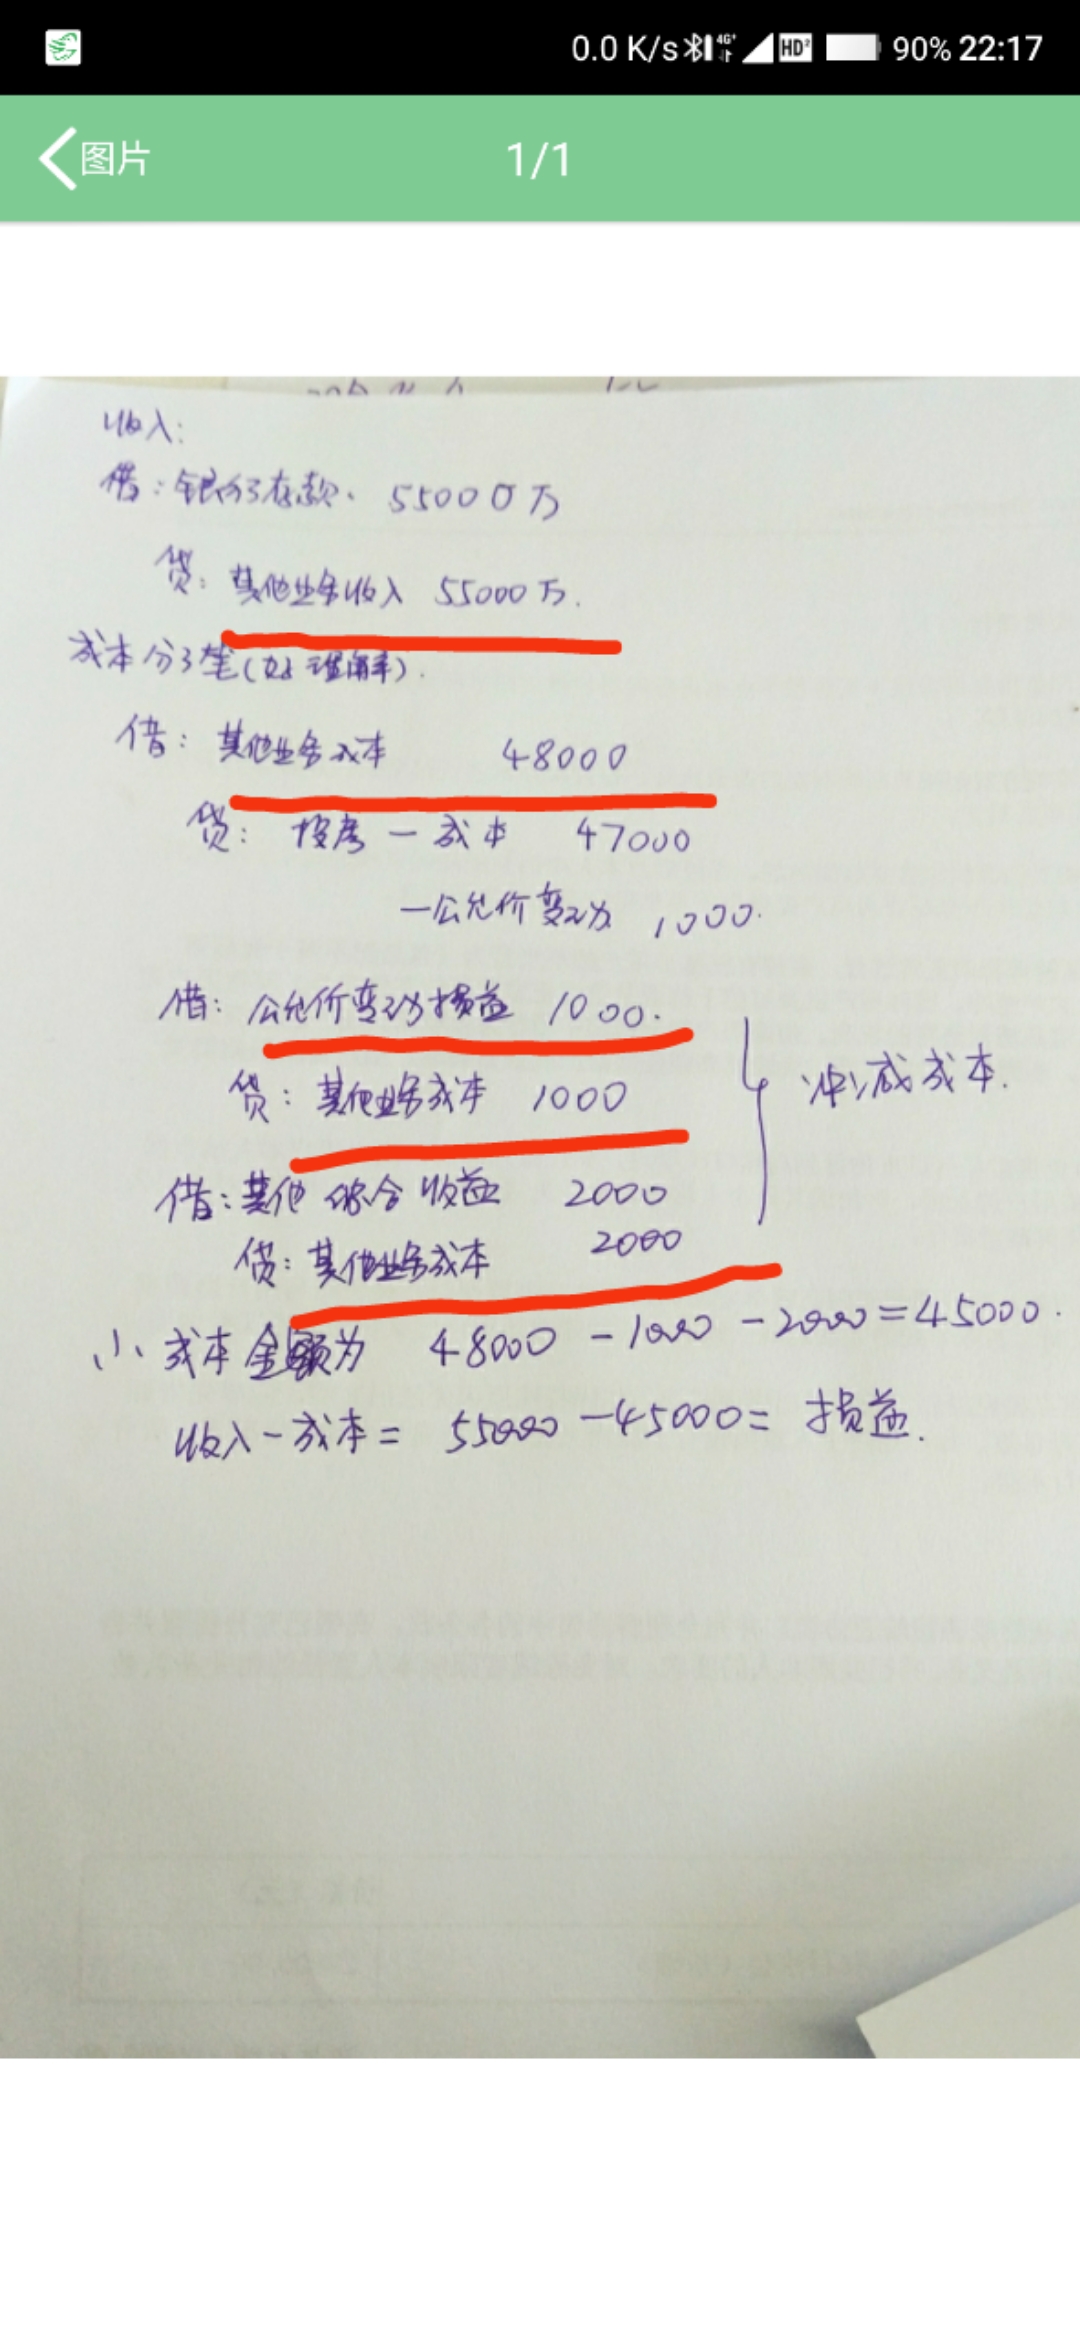 0.0 K/s 4G+ HD² 90% 22:17
图片 1/1
收入:
借:银行存款. 55000万
贷:其他业务收入 55000万.
成本分3笔(好理解).
借:其他业务成本 48000
贷:投房-成本 47000
-公允价变动 1000.
借:公允价变动损益 1000.
贷:其他业务成本 1000
冲减成本.
借:其他综合收益 2000
贷:其他业务成本 2000
∴成本金额为 48000-1000-2000=45000.
收入-成本= 55000-45000= 损益.